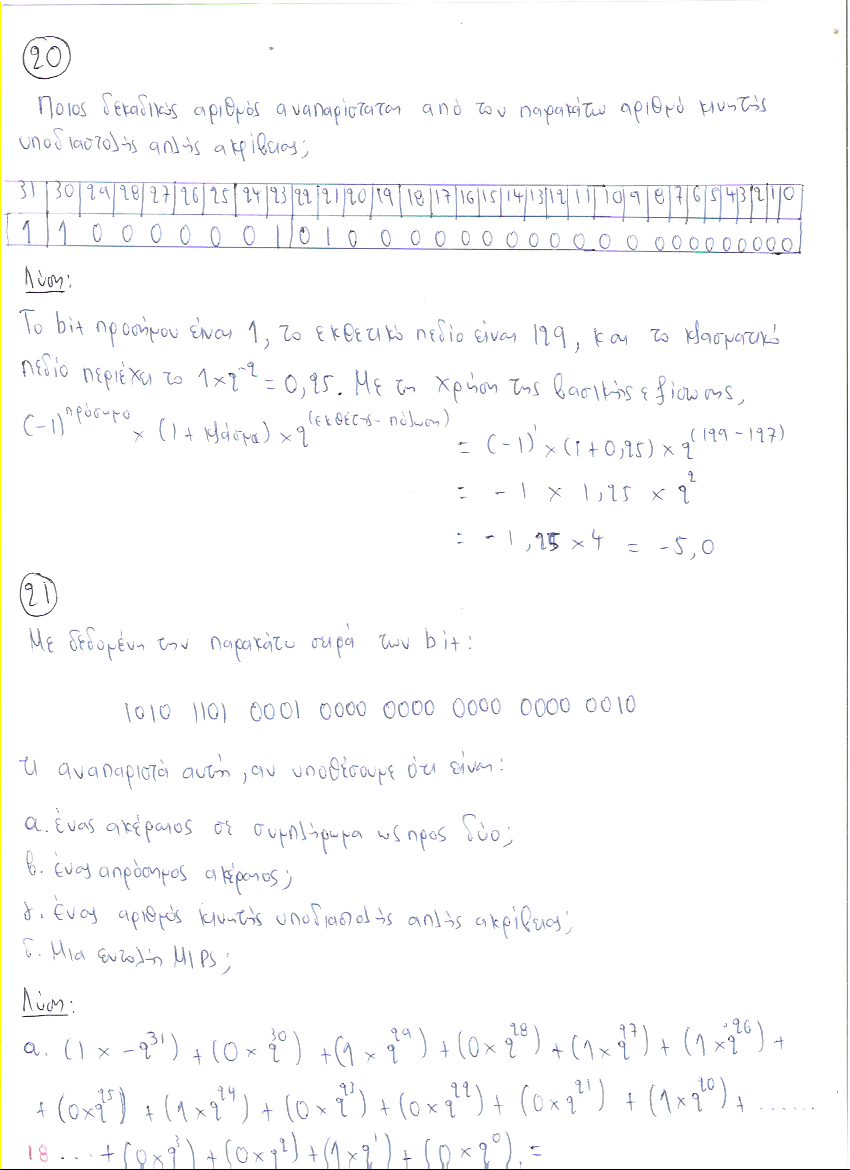 20
Ποιος δεκαδικός αριθμός αναπαρίσταται από τον παρακάτω αριθμό κινητής
υποδιαστολής απλής ακρίβειας;
31 30 29 28 27 26 25 24 23 22 21 20 19 18 17 16 15 14 13 12 11 10 9 8 7 6 5 4 3 2 1 0
1 1 0 0 0 0 0 0 1 0 1 0 0 0 0 0 0 0 0 0 0 0 0 0 0 0 0 0 0 0 0 0
Λύση:
Το bit προσήμου είναι 1, το εκθετικό πεδίο είναι 129, και το κλασματικό
πεδίο περιέχει το 1×2⁻² = 0,25. Με τη χρήση της βασικής εξίσωσης,
(-1)^πρόσημο × (1 + κλάσμα) × 2^(εκθέτης - πόλωση) = (-1)¹ × (1+0,25) × 2^(129-127)
= -1 × 1,25 × 2²
= -1,25 × 4 = -5,0
21
Με δεδομένη την παρακάτω σειρά των bit:
1010 1101 0001 0000 0000 0000 0000 0010
τι αναπαριστά αυτή, αν υποθέσουμε ότι είναι:
α. ένας ακέραιος σε συμπλήρωμα ως προς δύο;
β. ένας απρόσημος ακέραιος;
γ. ένας αριθμός κινητής υποδιαστολής απλής ακρίβειας;
δ. Μια εντολή MIPS;
Λύση:
α. (1 × -2³¹) + (0 × 2³⁰) + (1 × 2²⁹) + (0 × 2²⁸) + (1 × 2²⁷) + (1 × 2²⁶) +
+ (0×2²⁵) + (1×2²⁴) + (0×2²³) + (0×2²²) + (0×2²¹) + (1×2²⁰) + ......
18 ... + (0×2³) + (0×2²) + (1×2¹) + (0×2⁰) =